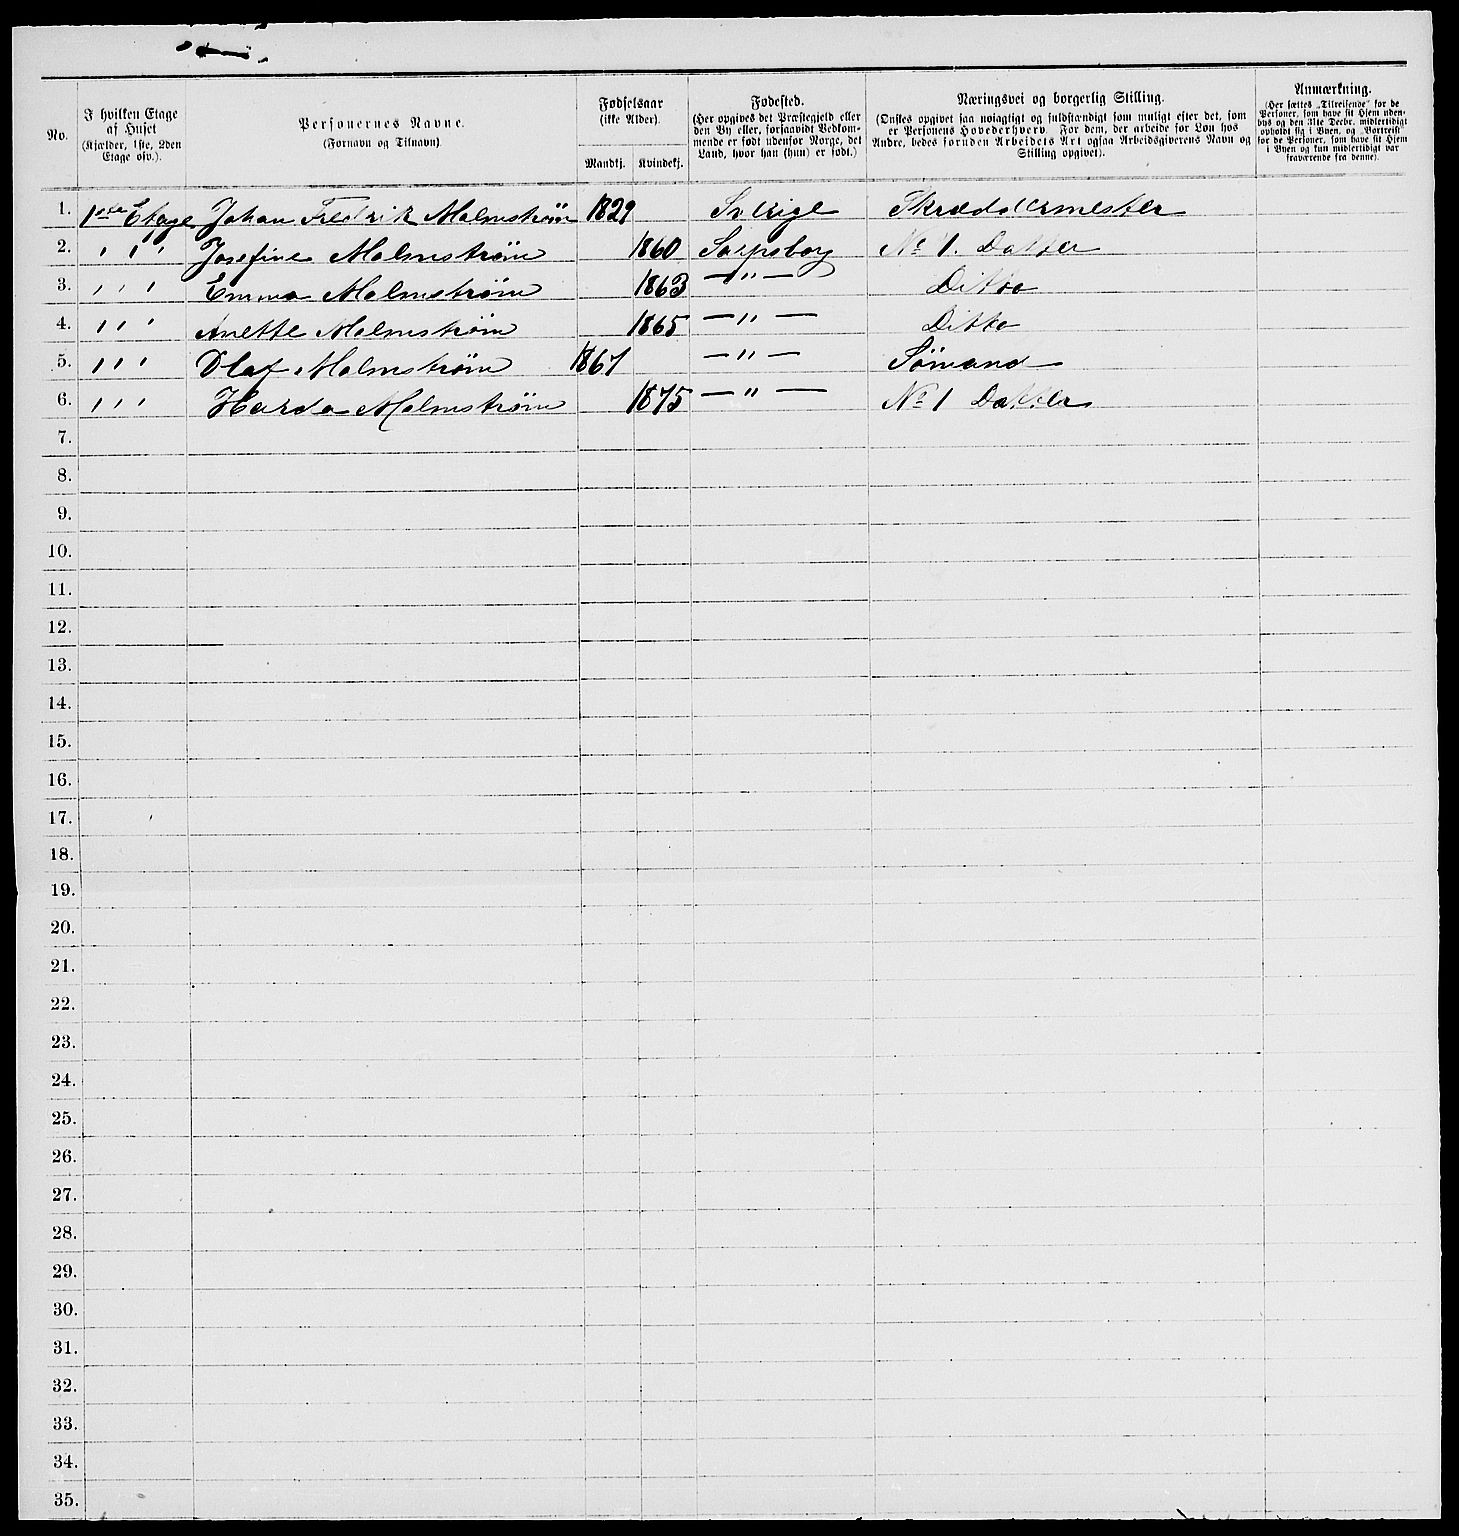 No.
I hvilken Etage
af Huset
(Kjælder, 1ste, 2den
Etage osv.).
Personernes Navne.
(Fornavn og Tilnavn)
Fødselsaar
(ikke Alder).
Mandkj. Kvindekj.
Fødested.
(Her opgives det Præstegjeld eller
den By eller, forsaavidt Vedkom-
mende er født udenfor Norge, det
Land, hvor han (hun) er født.)
Næringsvei og borgerlig Stilling.
(Ønskes opgivet saa nøiagtigt og fuldstændigt som muligt efter det, som
er Personens Hovederhverv. For dem, der arbeide for Løn hos
Andre, bedes foruden Arbeidets Art ogsaa Arbeidsgiverens Navn og
Stilling opgivet).
Anmærkning.
(Her sættes „Tilreisende“ for de
Personer, som have sit Hjem uden-
bys og den 31te Decbr. midlertidigt
opholdt sig i Byen, og „Bortreist“
for de Personer, som have sit Hjem
i Byen og kun midlertidigt var
fraværende fra denne).
1. 1ste Etage Johan Fredrik Malmstrøm 1829 Sverige Skræddermester
2. " " " Josefine Malmstrøm 1860 Sarpsborg No 1. Datter
3. " " " Emma Malmstrøm 1863 — " — Ditto
4. " " " Anette Malmstrøm 1865 — " — Ditto
5. " " " Olaf Malmstrøm 1867 — " — Sømand
6. " " " Malmstrøm 1875 — " — No 1 Datter
7.
8.
9.
10.
11.
12.
13.
14.
15.
16.
17.
18.
19.
20.
21.
22.
23.
24.
25.
26.
27.
28.
29.
30.
31.
32.
33.
34.
35.